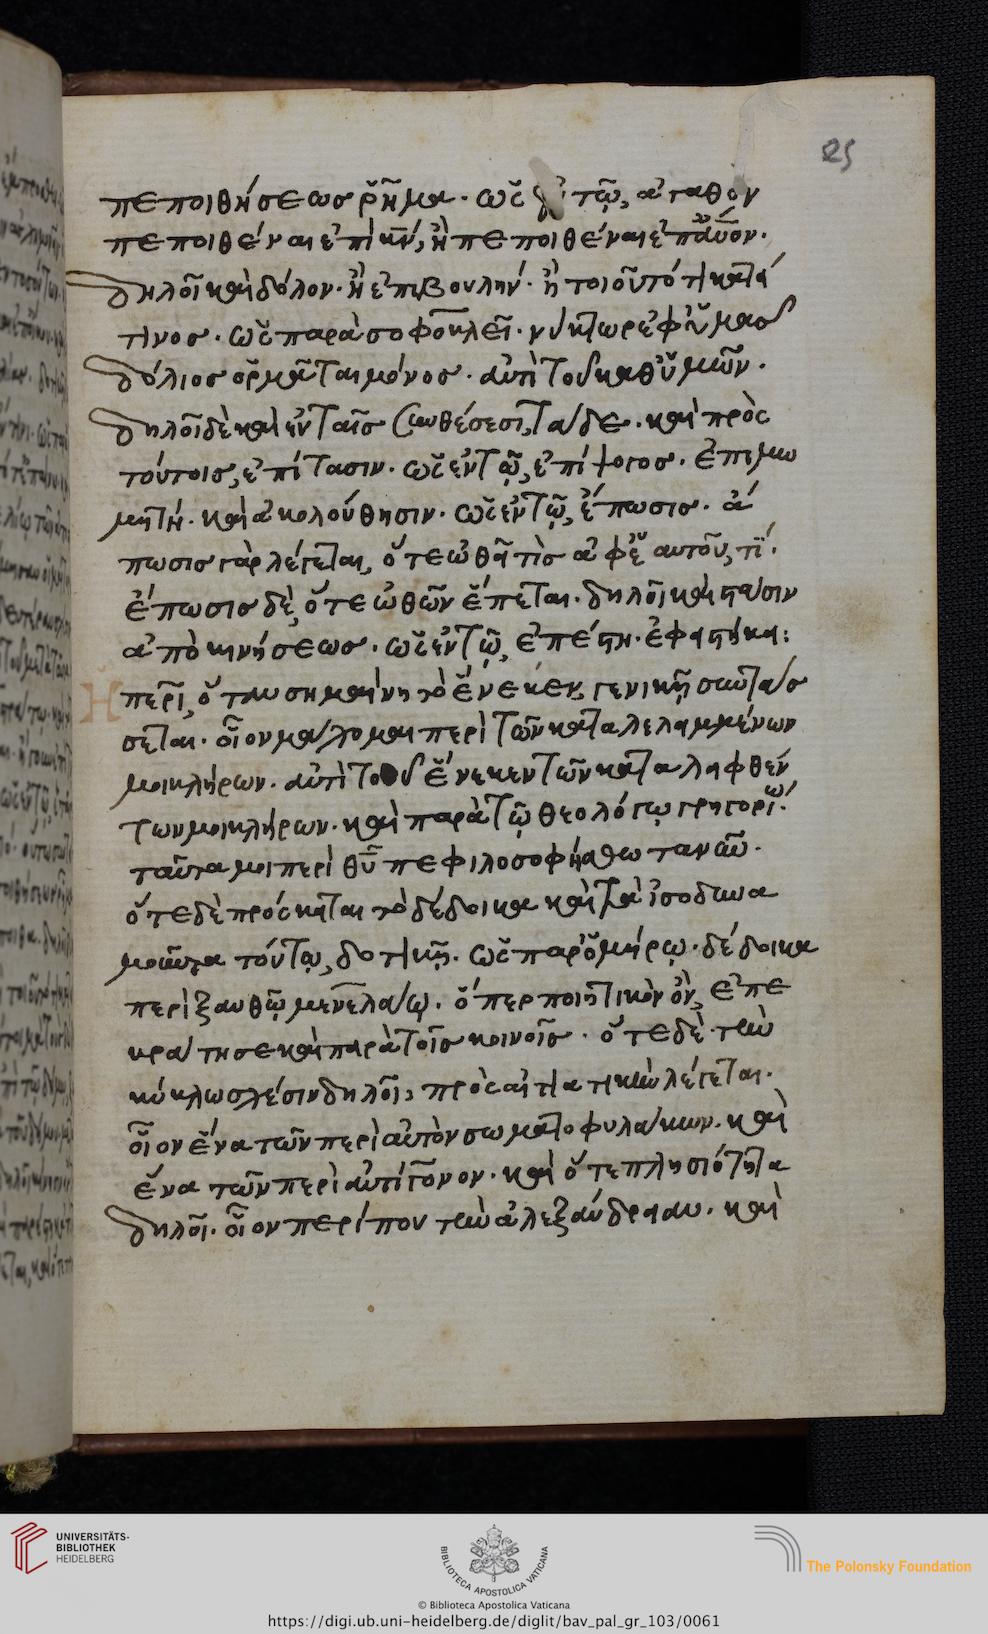 25
πεποιθήσεως ῥῆμα. ὡς ἐν τῷ, ἀγαθὸν
πεποιθέναι ἐπὶ κν, ἢ πεποιθέναι ἐπ ανον.
δηλοῖ καὶ δόλον. ἢ ἐπιβουλήν. ἢ τοιοῦτό τι κατά
τινος. ὡς παρὰ σοφοκλεῖ.
δόλιος ὁρμᾶται μόνος. ἀντὶ τοῦ καθ ὑμῶν.
δηλοῖ δὲ καὶ ἐν ταῖς συνθέσεσι, τάδε. καὶ πρὸς
τούτοις, ἐπίτασιν. ὡς ἐν τῷ, ἐπίψογος. ἐπιμω
μητή. καὶ ἀκολούθησιν. ὡς ἐν τῷ, ἔπωσις. ἄ
πωσις γὰρ λέγεται, ὅτε ὠθῇ τὶς ἀφ ἑαυτοῦ, τί.
ἔπωσις δὲ, ὅτε ὠθῶν ἕπεται. δηλοῖ καὶ παῦσιν
ἀπὸ κινήσεως. ὡς ἐν τῷ, ἐπέστη. ἐφεστήκει:
Η περὶ, ὅταν σημαίνῃ τὸ ἕνεκεν, γενικῇ συντάσ
σεται. οἷον μάχομαι περὶ τῶν καταλελειμμένων
μοι κλήρων. ἀντὶ τοῦ ἕνεκεν τῶν καταλειφθέν
των μοι κλήρων. καὶ παρὰ τῷ θεολόγῳ γρηγορίω.
ταῦτα μοι περὶ θῦ πεφιλοσοφήσθω τανῦν.
ὅτε δὲ πρόσκειται τὸ δέδοικα καὶ τὰ ἰσοδυνα
μοῦντα τούτῳ, δοτικῇ. ὡς παρ ὁμήρῳ. δέδοικα
περὶ ξανθῷ μενελάῳ. ὅπερ ποιητικὸν ὂν, ἐπε
κράτησε καὶ παρὰ τοῖς κοινοῖς. ὅτε δὲ τὴν
κύκλωσιν δηλοῖ, πρὸς αἰτιατικὴν λέγεται.
οἷον ἕνα τῶν περὶ αὐτὸν σωματοφυλάκων. καὶ
ἕνα τῶν περὶ ἀντίγονον. καὶ ὅτε πλησιότητα
δηλοῖ. οἷον περίπου τὴν ἀλεξάνδρειαν. καὶ
UNIVERSITÄTS-
BIBLIOTHEK
HEIDELBERG
BIBLIOTECA APOSTOLICA VATICANA
The Polonsky Foundation
© Biblioteca Apostolica Vaticana
https://digi.ub.uni-heidelberg.de/diglit/bav_pal_gr_103/0061